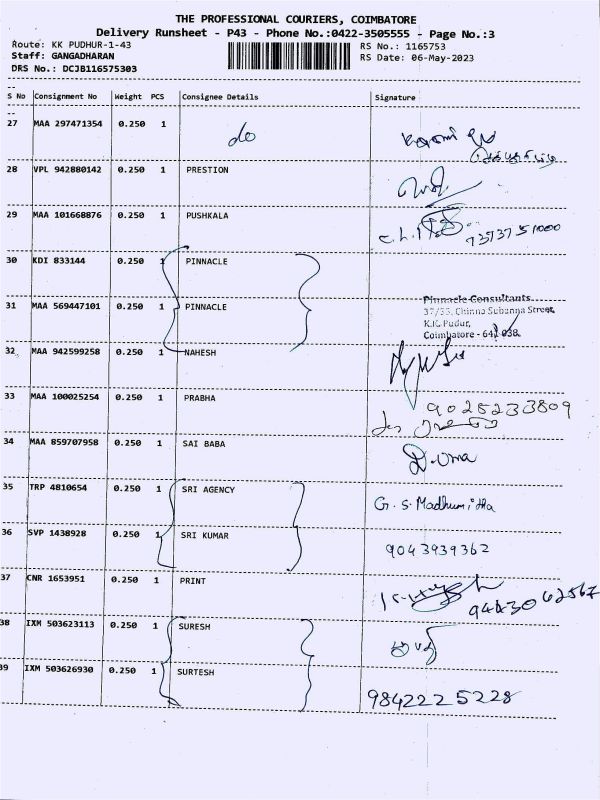 THE PROFESSIONAL COURIERS, COIMBATORE
Delivery Runsheet - P43 - Phone No.:0422-3505555 - Page No.:3
Route: KK PUDHUR-1-43 RS No.: 1165753
Staff: GANGADHARAN RS Date: 06-May-2023
DRS No.: DCJB116575303
S No Consignment No Weight PCS Consignee Details Signature
27 MAA 297471354 0.250 1 do
28 VPL 942880142 0.250 1 PRESTION
29 MAA 101668876 0.250 1 PUSHKALA
7373751000
30 KDI 833144 0.250 1 PINNACLE
Pinnacle Consultants
31 MAA 569447101 0.250 1 PINNACLE 37/35, Chinna Subanna Street,
K.K. Pudur,
Coimbatore - 641 038.
32 MAA 942599258 0.250 1 NAHESH
33 MAA 100025254 0.250 1 PRABHA 9025233809
34 MAA 859707958 0.250 1 SAI BABA D. Uma
35 TRP 4810654 0.250 1 SRI AGENCY G. S. Madhumitha
36 SVP 1438928 0.250 1 SRI KUMAR 9043939362
37 CNR 1653951 0.250 1 PRINT
38 IXM 503623113 0.250 1 SURESH
39 IXM 503626930 0.250 1 SURTESH 9842225228